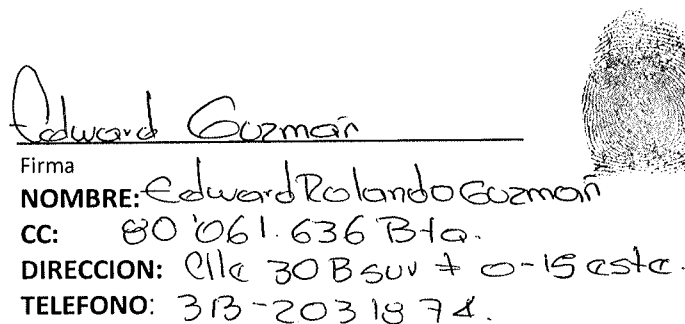 Edward Guzmán
Firma
NOMBRE: Edward Rolando Guzmán
CC: 80'061.636 Bta.
DIRECCION: Clle 30 B sur # 0-15 este.
TELEFONO: 313-2031874.